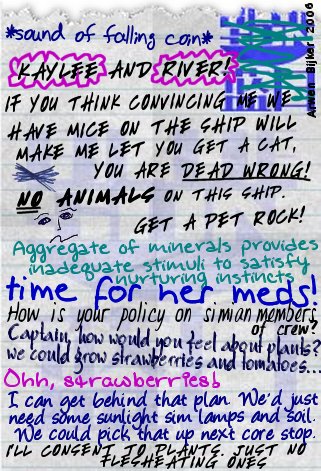 *sound of falling coin*
KAYLEE AND RIVER!
IF YOU THINK CONVINCING ME WE
HAVE MICE ON THE SHIP WILL
MAKE ME LET YOU GET A CAT,
YOU ARE DEAD WRONG!
NO ANIMALS ON THIS SHIP.
GET A PET ROCK!
Aggregate of minerals provides
inadequate stimuli to satisfy
nurturing instincts
time for her meds!
How is your policy on simian members
of crew?
Captain, how would you feel about plants?
we could grow strawberries and tomatoes...
Ohh, strawberries!
I can get behind that plan. We'd just
need some sunlight sim lamps and soil.
We could pick that up next core stop.
I'LL CONSENT TO PLANTS. JUST NO
FLESHEATING ONES
Arwen Bijker 2006